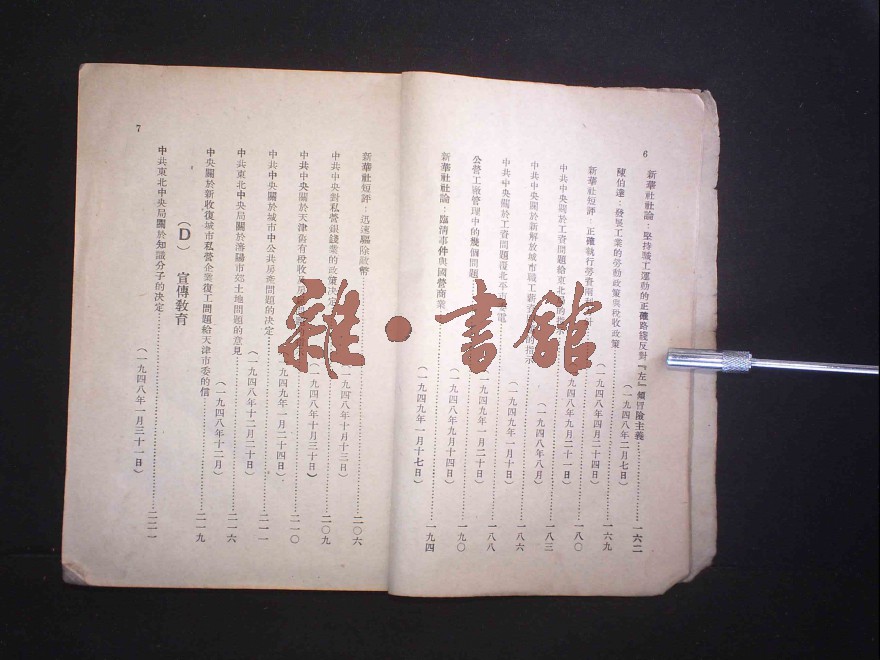 6
新華社社論：堅持職工運動的正確路綫反對『左』傾冒險主義……一六二
（一九四八年二月七日）
陳伯達：發展工業的勞動政策與稅收政策……一六九
（一九四八年四月二十四日）
新華社短評：正確執行勞資兩利方針……一八〇
九四八年九月二十一日）
中共中央關於工資問題給東北局的指示……一八三
（一九四八年八月）
中共中央關於新解放城市職工薪資的指示……一八六
（一九四九年一月十日）
中共中央關於工資問題復北平電……一八八
（一九四九年一月二十日）
公營工廠管理中的幾個問題……一九〇
（一九四八年九月十四日）
新華社社論：臨清事件與國營商業……一九四
（一九四九年一月十七日）
7
新華社短評：迅速驅除敵幣……二〇六
一九四八年十月十三日）
中共中央對私營銀錢業的政策決定……二〇九
（一九四八年十月三十日）
中共中央關於天津舊有稅收及房……二一〇
九四九年一月二十四日）
中共中央關於城市中公共房產問題的決定……二一一
（一九四八年十二月二十日）
中共東北中央局關於瀋陽市郊土地問題的意見……二一六
（一九四八年十二月）
中央關於新收復城市私營企業復工問題給天津市委的信……二一九
（D）　宣傳教育
中共東北中央局關於知識分子的決定……二二一
（一九四八年一月三十一日）
雜·書館